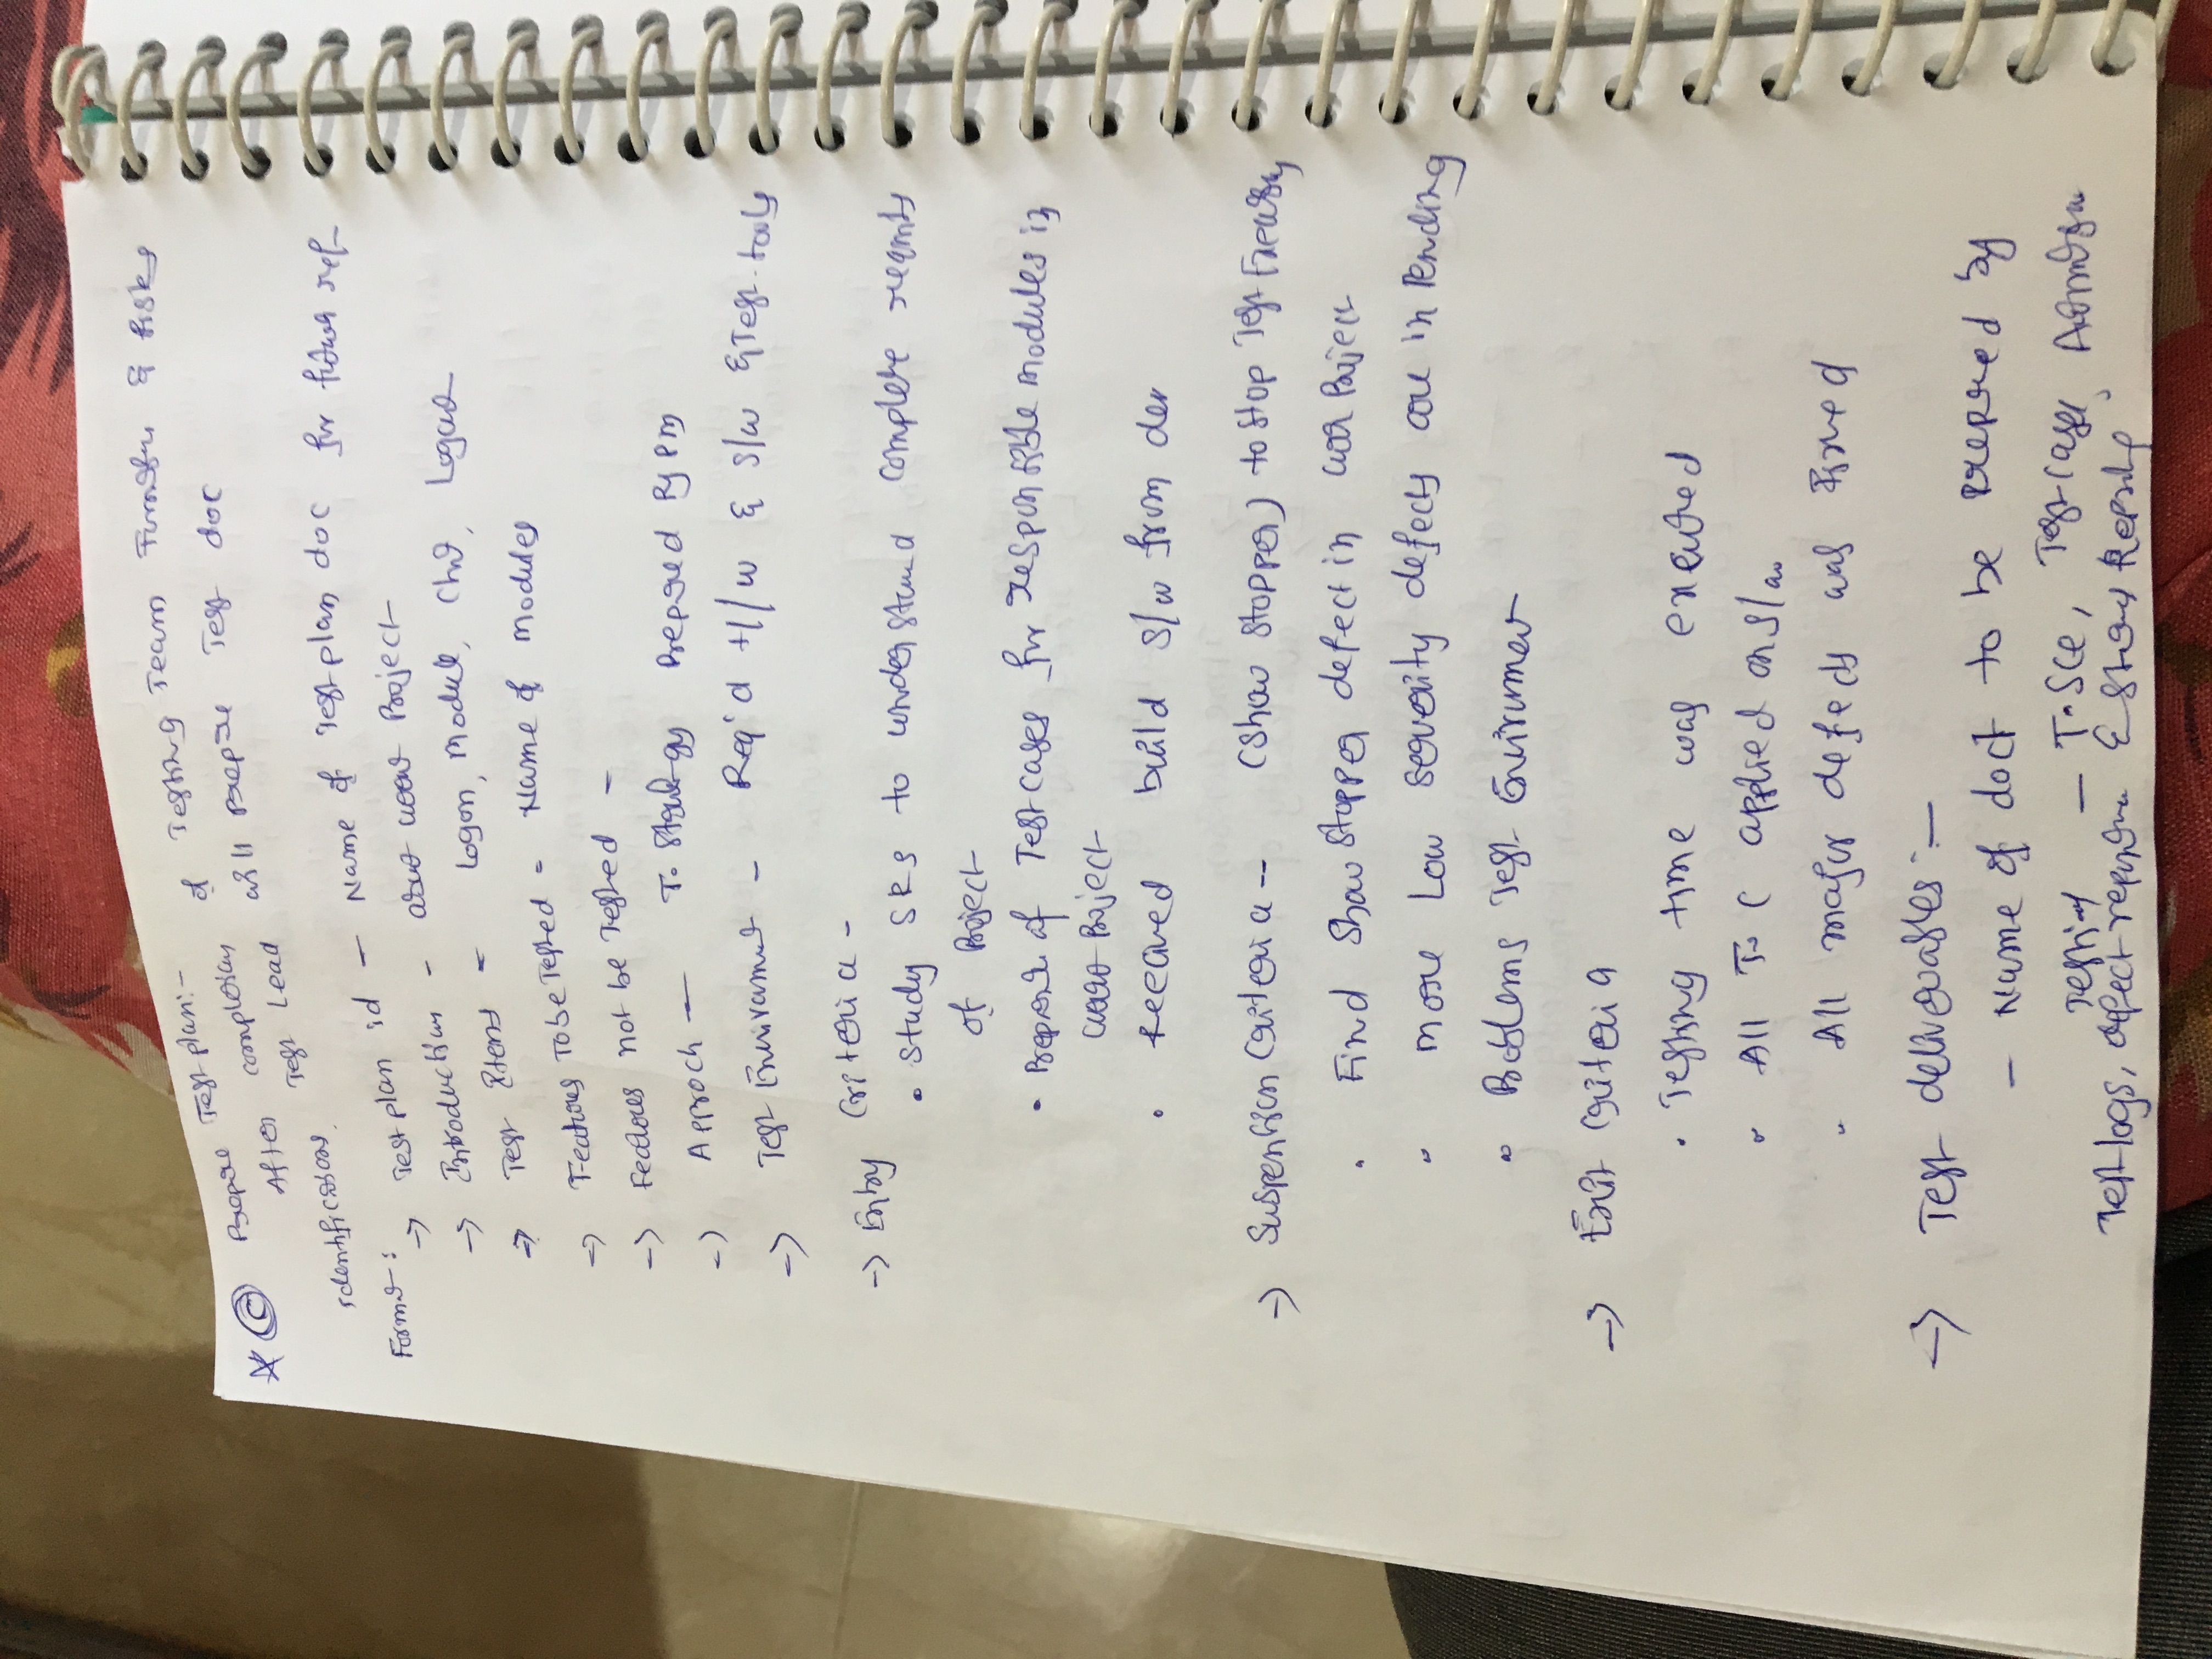 ☆ Ⓒ Prepare Test plan:-
After completion of Testing Team Formation & Risks
identifications, Test Lead will prepare Test doc
Format :
→ Test plan id — Name of Test plan doc for future ref
→ Introduction - about Project
→ Test Items - Logon, Module, Chat, Logout
→ Features To be Tested - Name of modules
→ Features not be Tested -
→ Approch — T. Strategy Prepared By PM
→ Test Environment - Req'd H/w & S/w & Test tools
→ Entry Criteria -
• Study SRS to understand complete reqmts
of Project
• Prepare of Test cases for responsible modules in
Project
• Received build S/w from dev
→ Suspention Criteria -- (Show Stopper) to Stop Test Execution
• Find Show Stopper defect in Project
• More Low Severity defects are in Pending
• Problems Test Environment
→ Exit Criteria
• Testing time was executed
• All T. C applied on S/w
• All major defects was Fixed
→ Test deliverables :—
— Name of doct to be prepared by
Testing — T. Sce, Test cases, Automation
Test logs, defect report & Status Reports